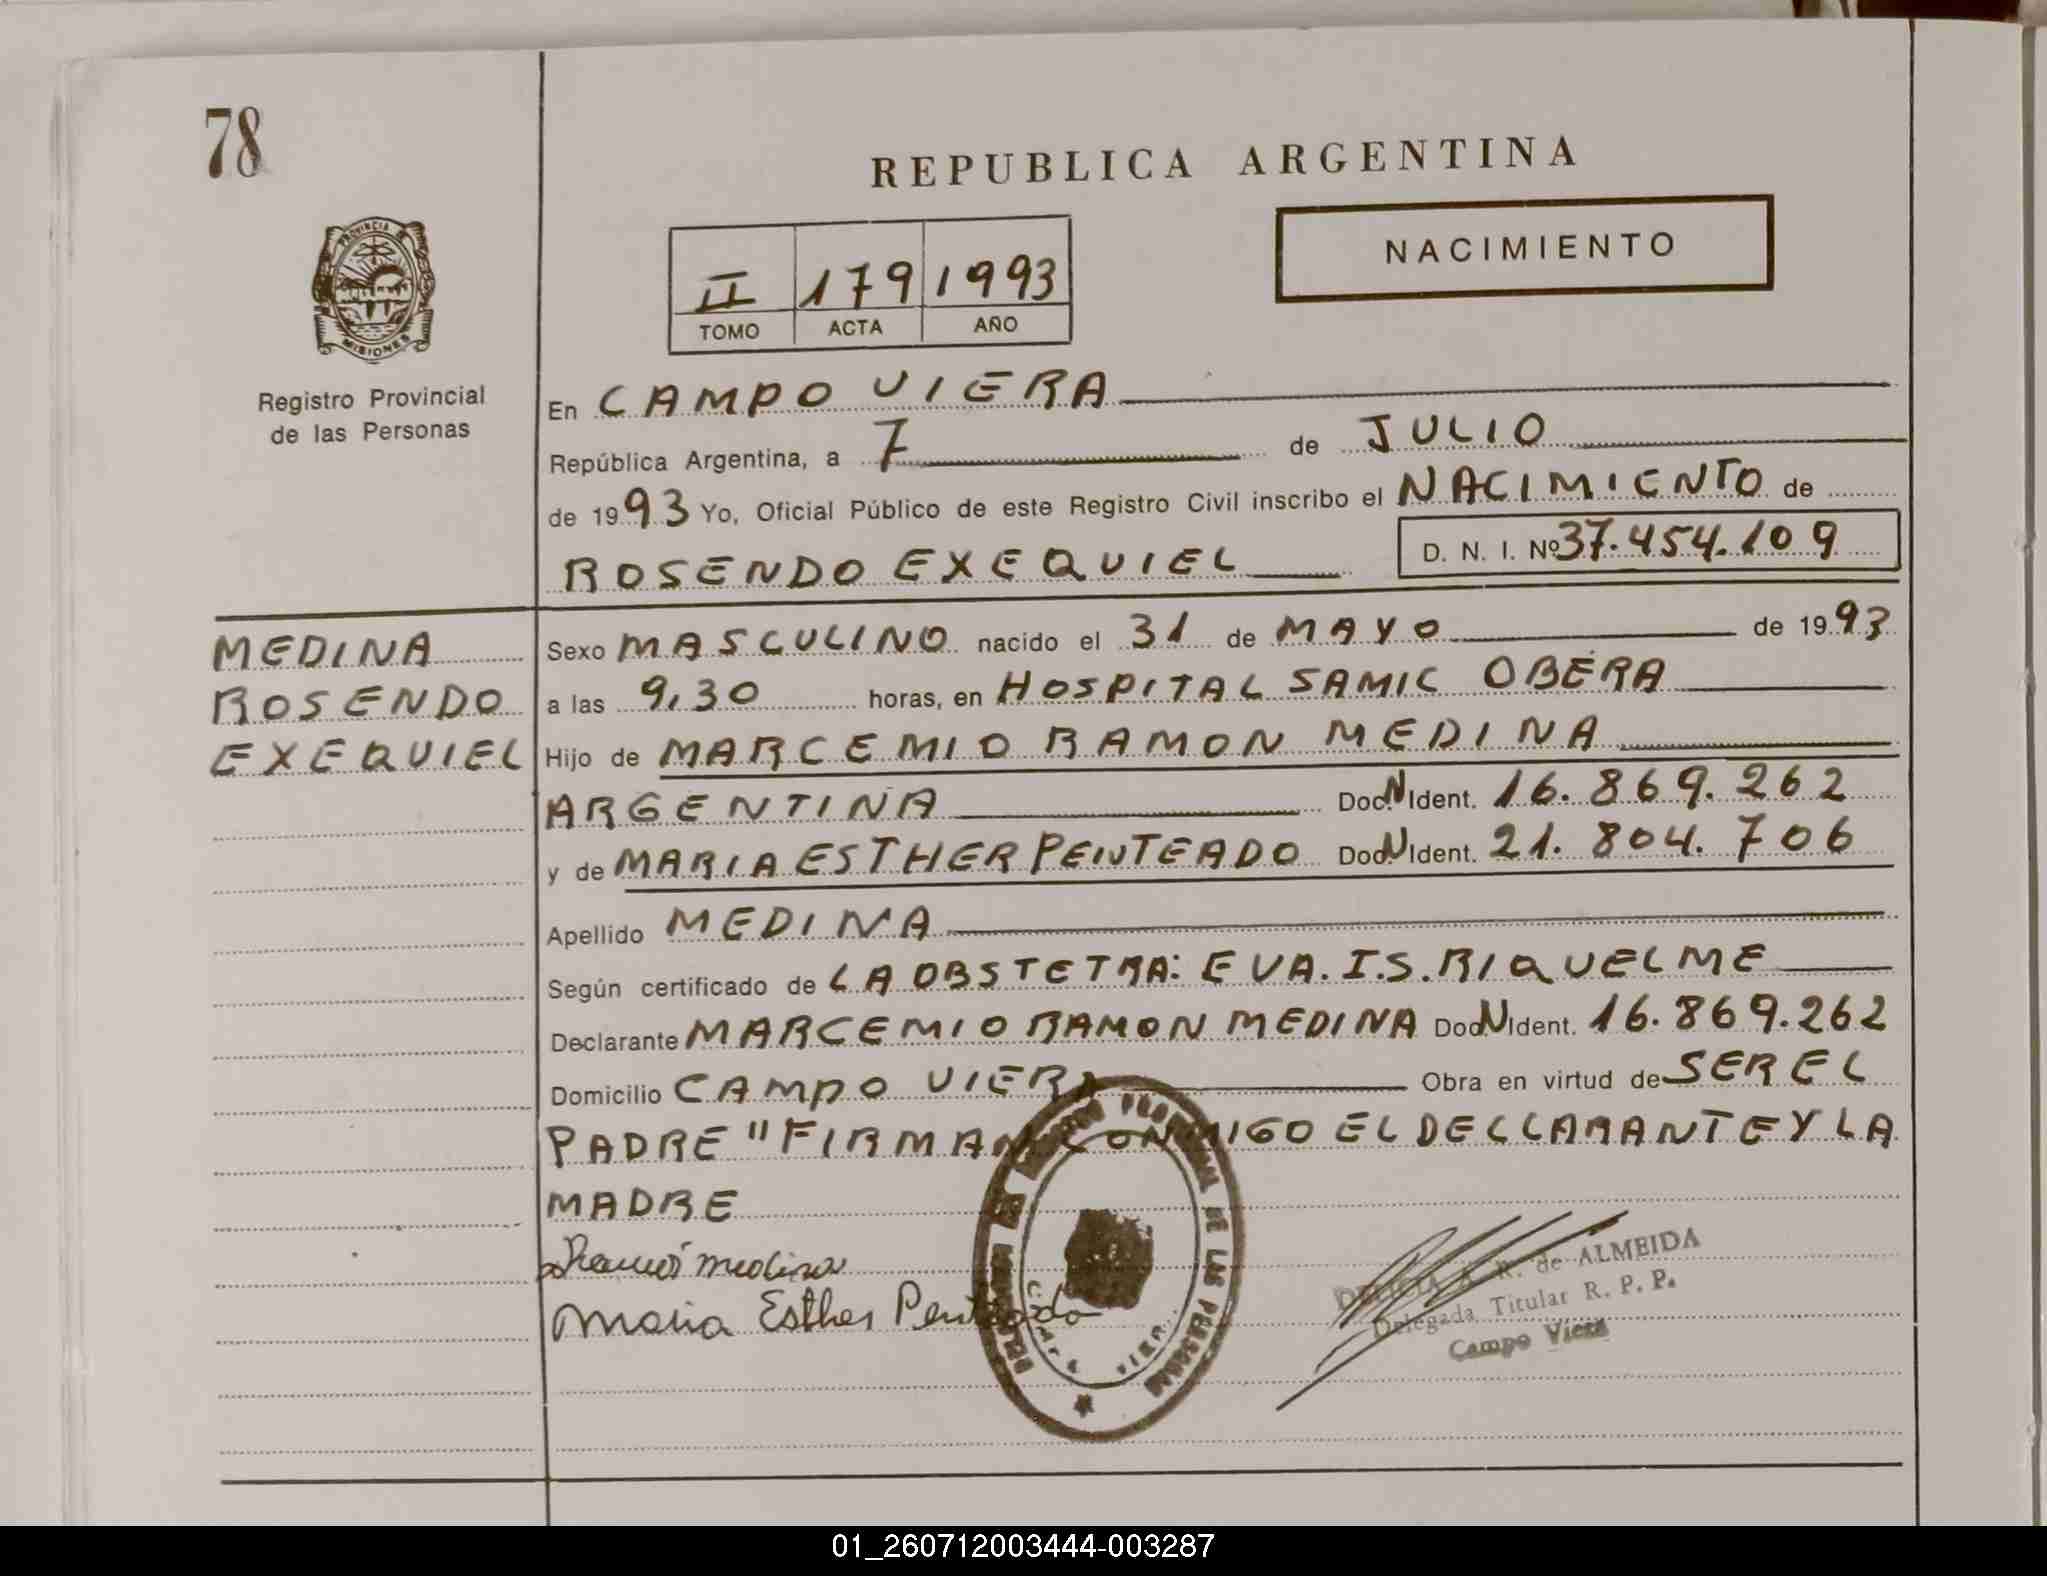 78
REPUBLICA ARGENTINA
NACIMIENTO
II 179 1993
TOMO ACTA AÑO
PROVINCIA DE
MISIONES
Registro Provincial
de las Personas
En CAMPO VIERA
República Argentina, a 7 de JULIO
de 1993 Yo, Oficial Público de este Registro Civil inscribo el NACIMIENTO de
ROSENDO EXEQUIEL D. N. I. Nº 37.454.109
MEDINA
ROSENDO
EXEQUIEL
Sexo MASCULINO nacido el 31 de MAYO de 1993
a las 9,30 horas, en HOSPITAL SAMIC OBERA
Hijo de MARCEMIO RAMON MEDINA
ARGENTINA Doc. N Ident. 16.869.262
y de MARIA ESTHER PENTEADO Doc. N Ident. 21.804.706
Apellido MEDINA
Según certificado de LA OBSTETRA: EVA. I.S. RIQUELME
Declarante MARCEMIO RAMON MEDINA Doc. N Ident. 16.869.262
Domicilio CAMPO VIERA Obra en virtud de SER EL
PADRE " FIRMAN CONMIGO EL DECLLARANTE Y LA
MADRE
Ramón Medina
Maria Esther Penteado
PROVINCIAL DE LAS PERSONAS
R. de ALMEIDA
Delegada Titular R. P. P.
Campo Viera
01_260712003444-003287